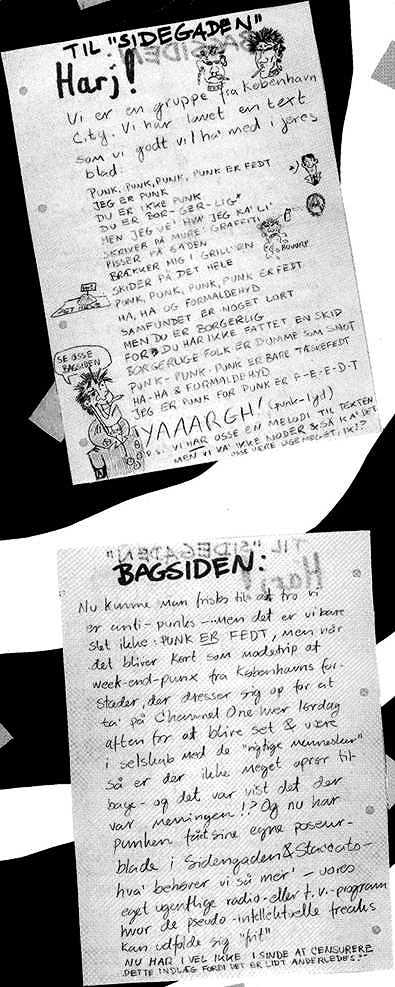 TIL "SIDEGADEN"
Harj!
Vi er en gruppe fra København
City. Vi har lavet en text
som vi godt vil ha' med i jeres
blad:
PUNK, PUNK, PUNK, PUNK ER FEDT
JEG ER PUNK
DU ER IKKE PUNK
DU ER BOR-GER-LIG*
MEN JEG VE' HVA' JEG KA' LI'
SKRIVER PÅ MURE: GRAFFITI
PISSER PÅ GADEN
BRÆKKER MIG I GRILL'EN
SKIDER PÅ DET HELE
PUNK, PUNK, PUNK, PUNK ER FEDT
HA, HA OG FORMALDEHYD
SAMFUNDET ER NOGET LORT
MEN DU ER BORGERLIG
FOR DU HAR IKKE FATTET EN SKID
BORGERLIGE FOLK ER DUMME SOM SNOT
PUNK-PUNK-PUNK ER BARE TÆSKEFEDT
HA-HA & FORMALDEHYD
JEG ER PUNK FOR PUNK ER F-E-E-D-T
YAAARGH! (punk-lyd)
P.S. VI HAR OSSE EN MELODI TIL TEXTEN
MEN VI KA' IKKE NODER & SÅ KA' DET
OSSE VÆRE LIGEMEGET, IK!?
SE OSSE
BAGSIDEN
DET HELE
BAGSIDEN:
Nu kunne man fristes til at tro vi
er anti-punks – men det er vi bare
slet ikke: PUNK ER FEDT, men når
det bliver kørt som modetrip af
week-end-punx fra Københavns for-
stæder, der dresser sig op for at
ta' på Channel One hver lørdag
aften for at blive set & være
i selskab med de "rigtige mennesker"
så er der ikke meget oprør til-
bage - og det var vist det der
var meningen!? Og nu har
punken fået sine egne poseur-
blade i Sidegaden & Staccato-
hva' behøver vi så mer' – vores
eget ugentlige radio- eller t.v.-program
hvor de pseudo-intellektuelle freaks
kan udfolde sig "frit"
NU HAR I VEL IKKE I SINDE AT CENSURERE
DETTE INDLÆG FORDI DET ER LIDT ANDERLEDES?